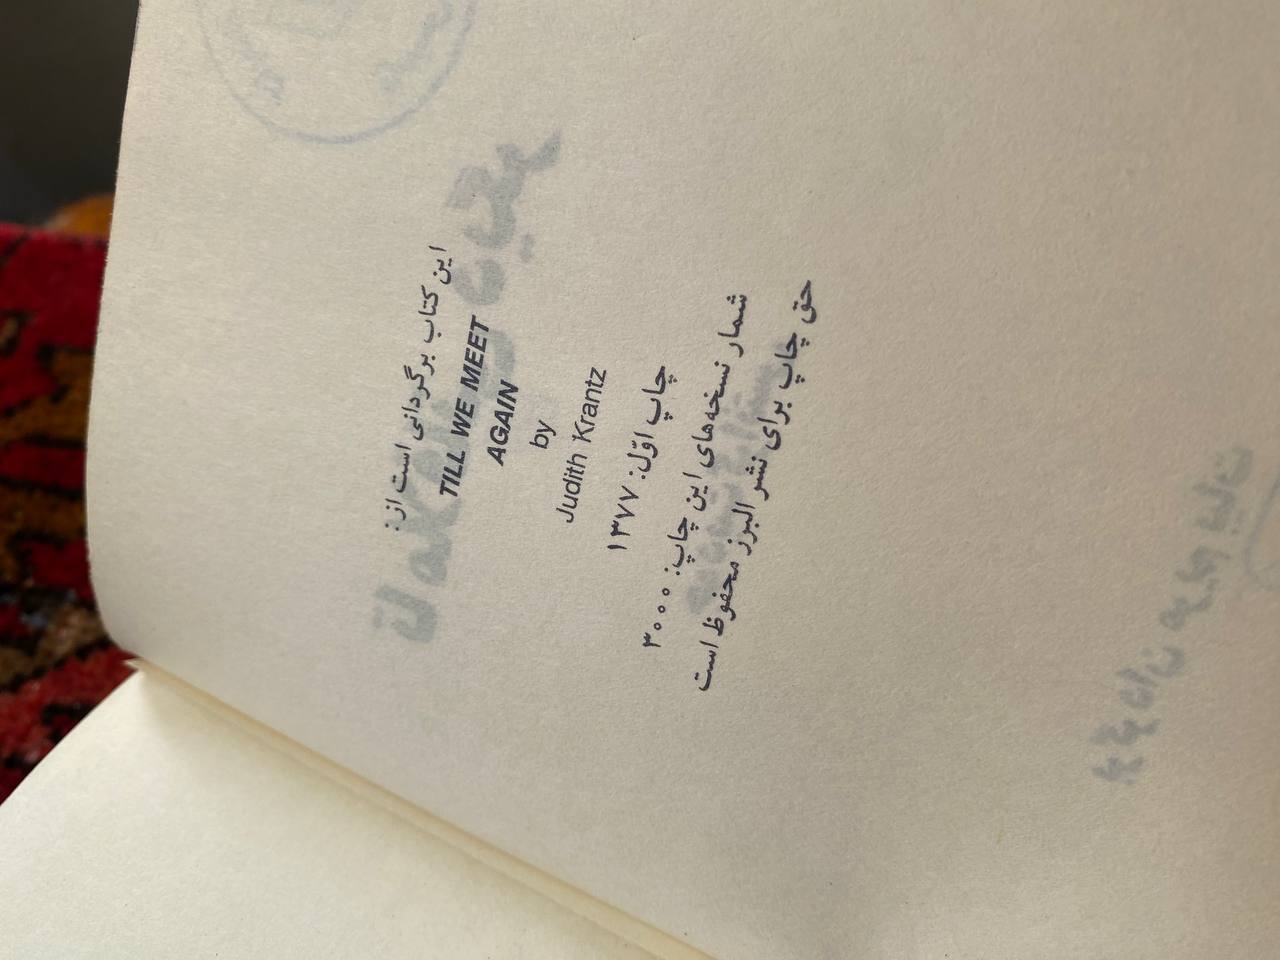 این کتاب برگردانی است از:
TILL WE MEET
AGAIN
by
Judith Krantz
چاپ اوّل: ۱۳۷۷
شمار نسخه‌های این چاپ: ۳۰۰۰
حق چاپ برای نشر البرز محفوظ است